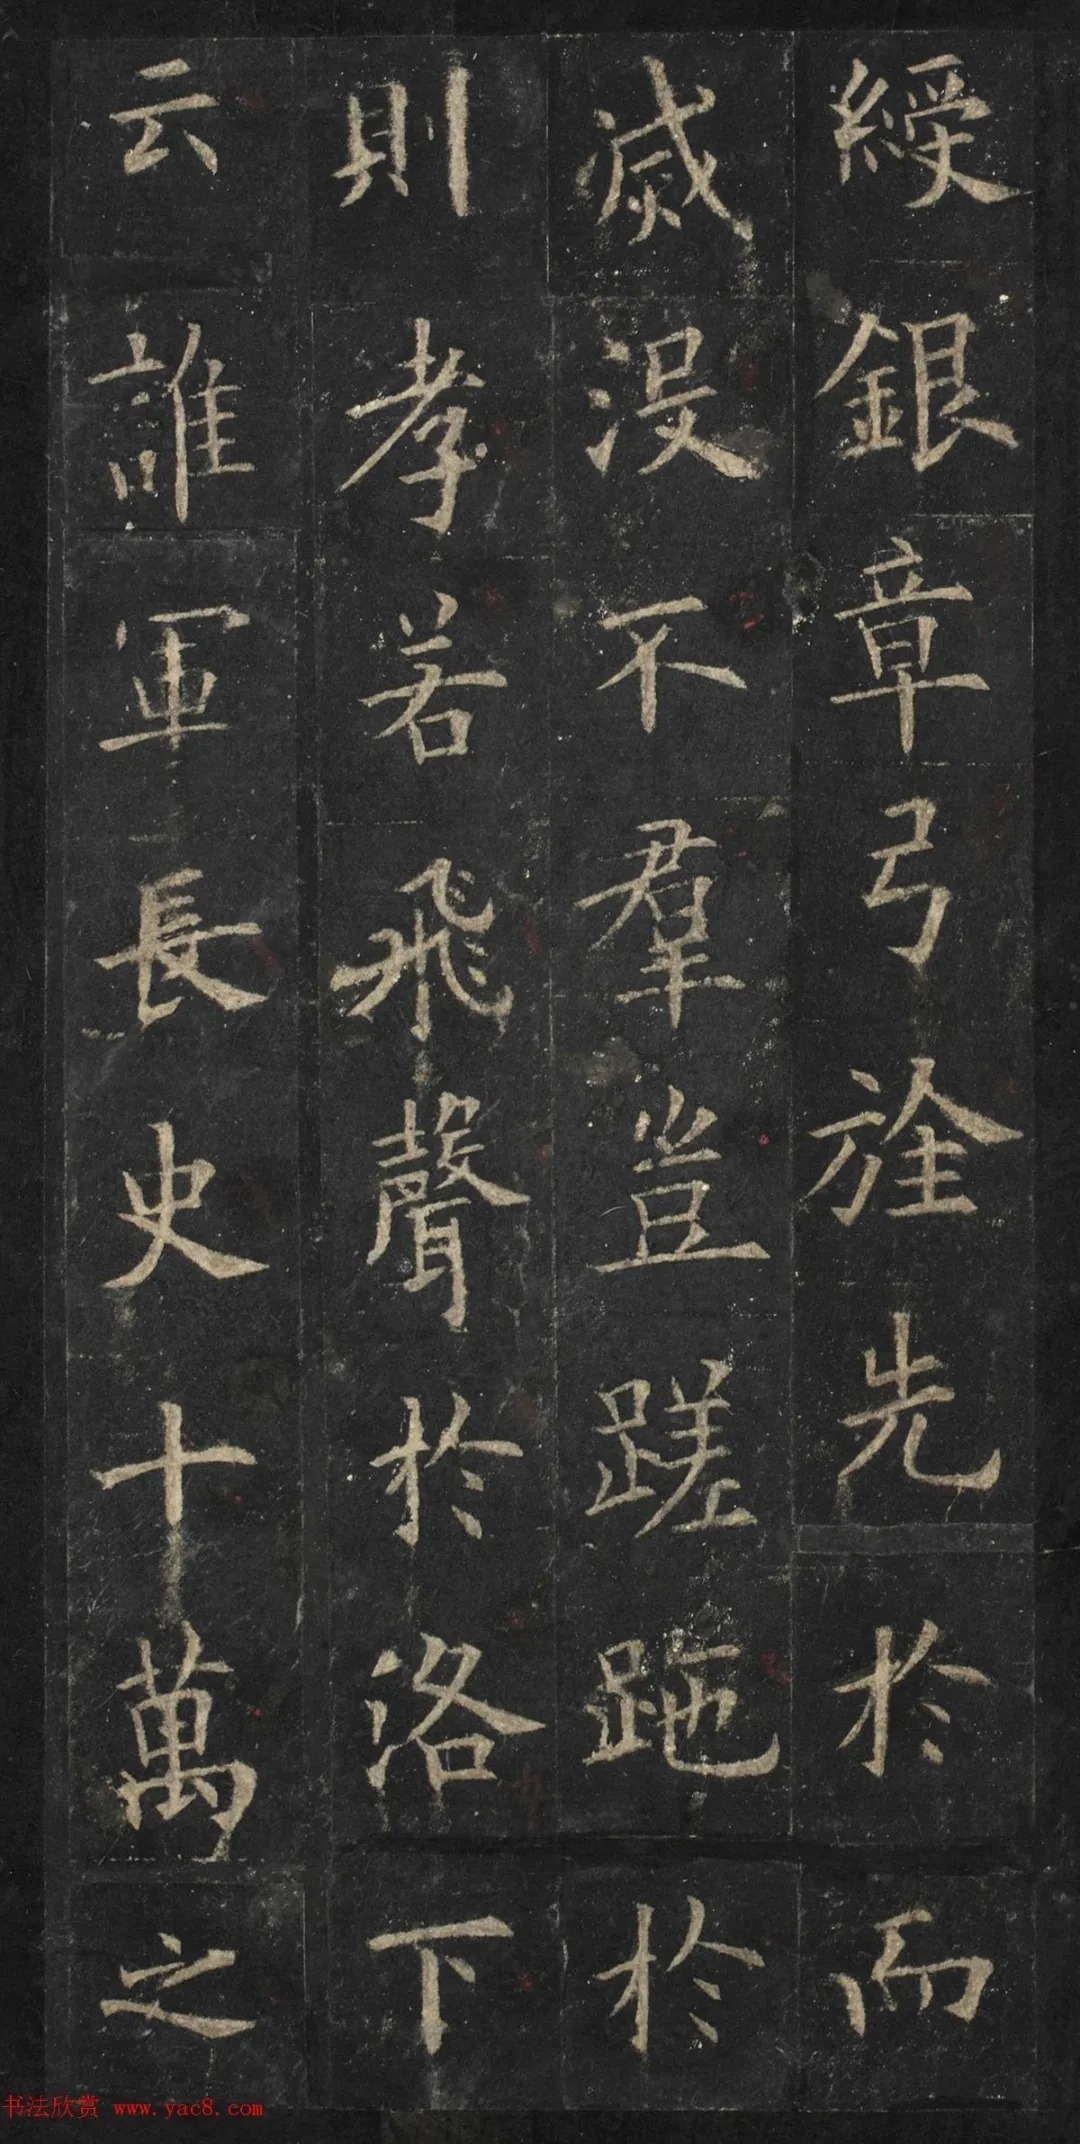 綬銀章弓旌先於而
滅没不羣豈蹉跎於
則孝若飛聲於洛下
云誰軍長史十萬之
书法欣赏 www.yac8.com